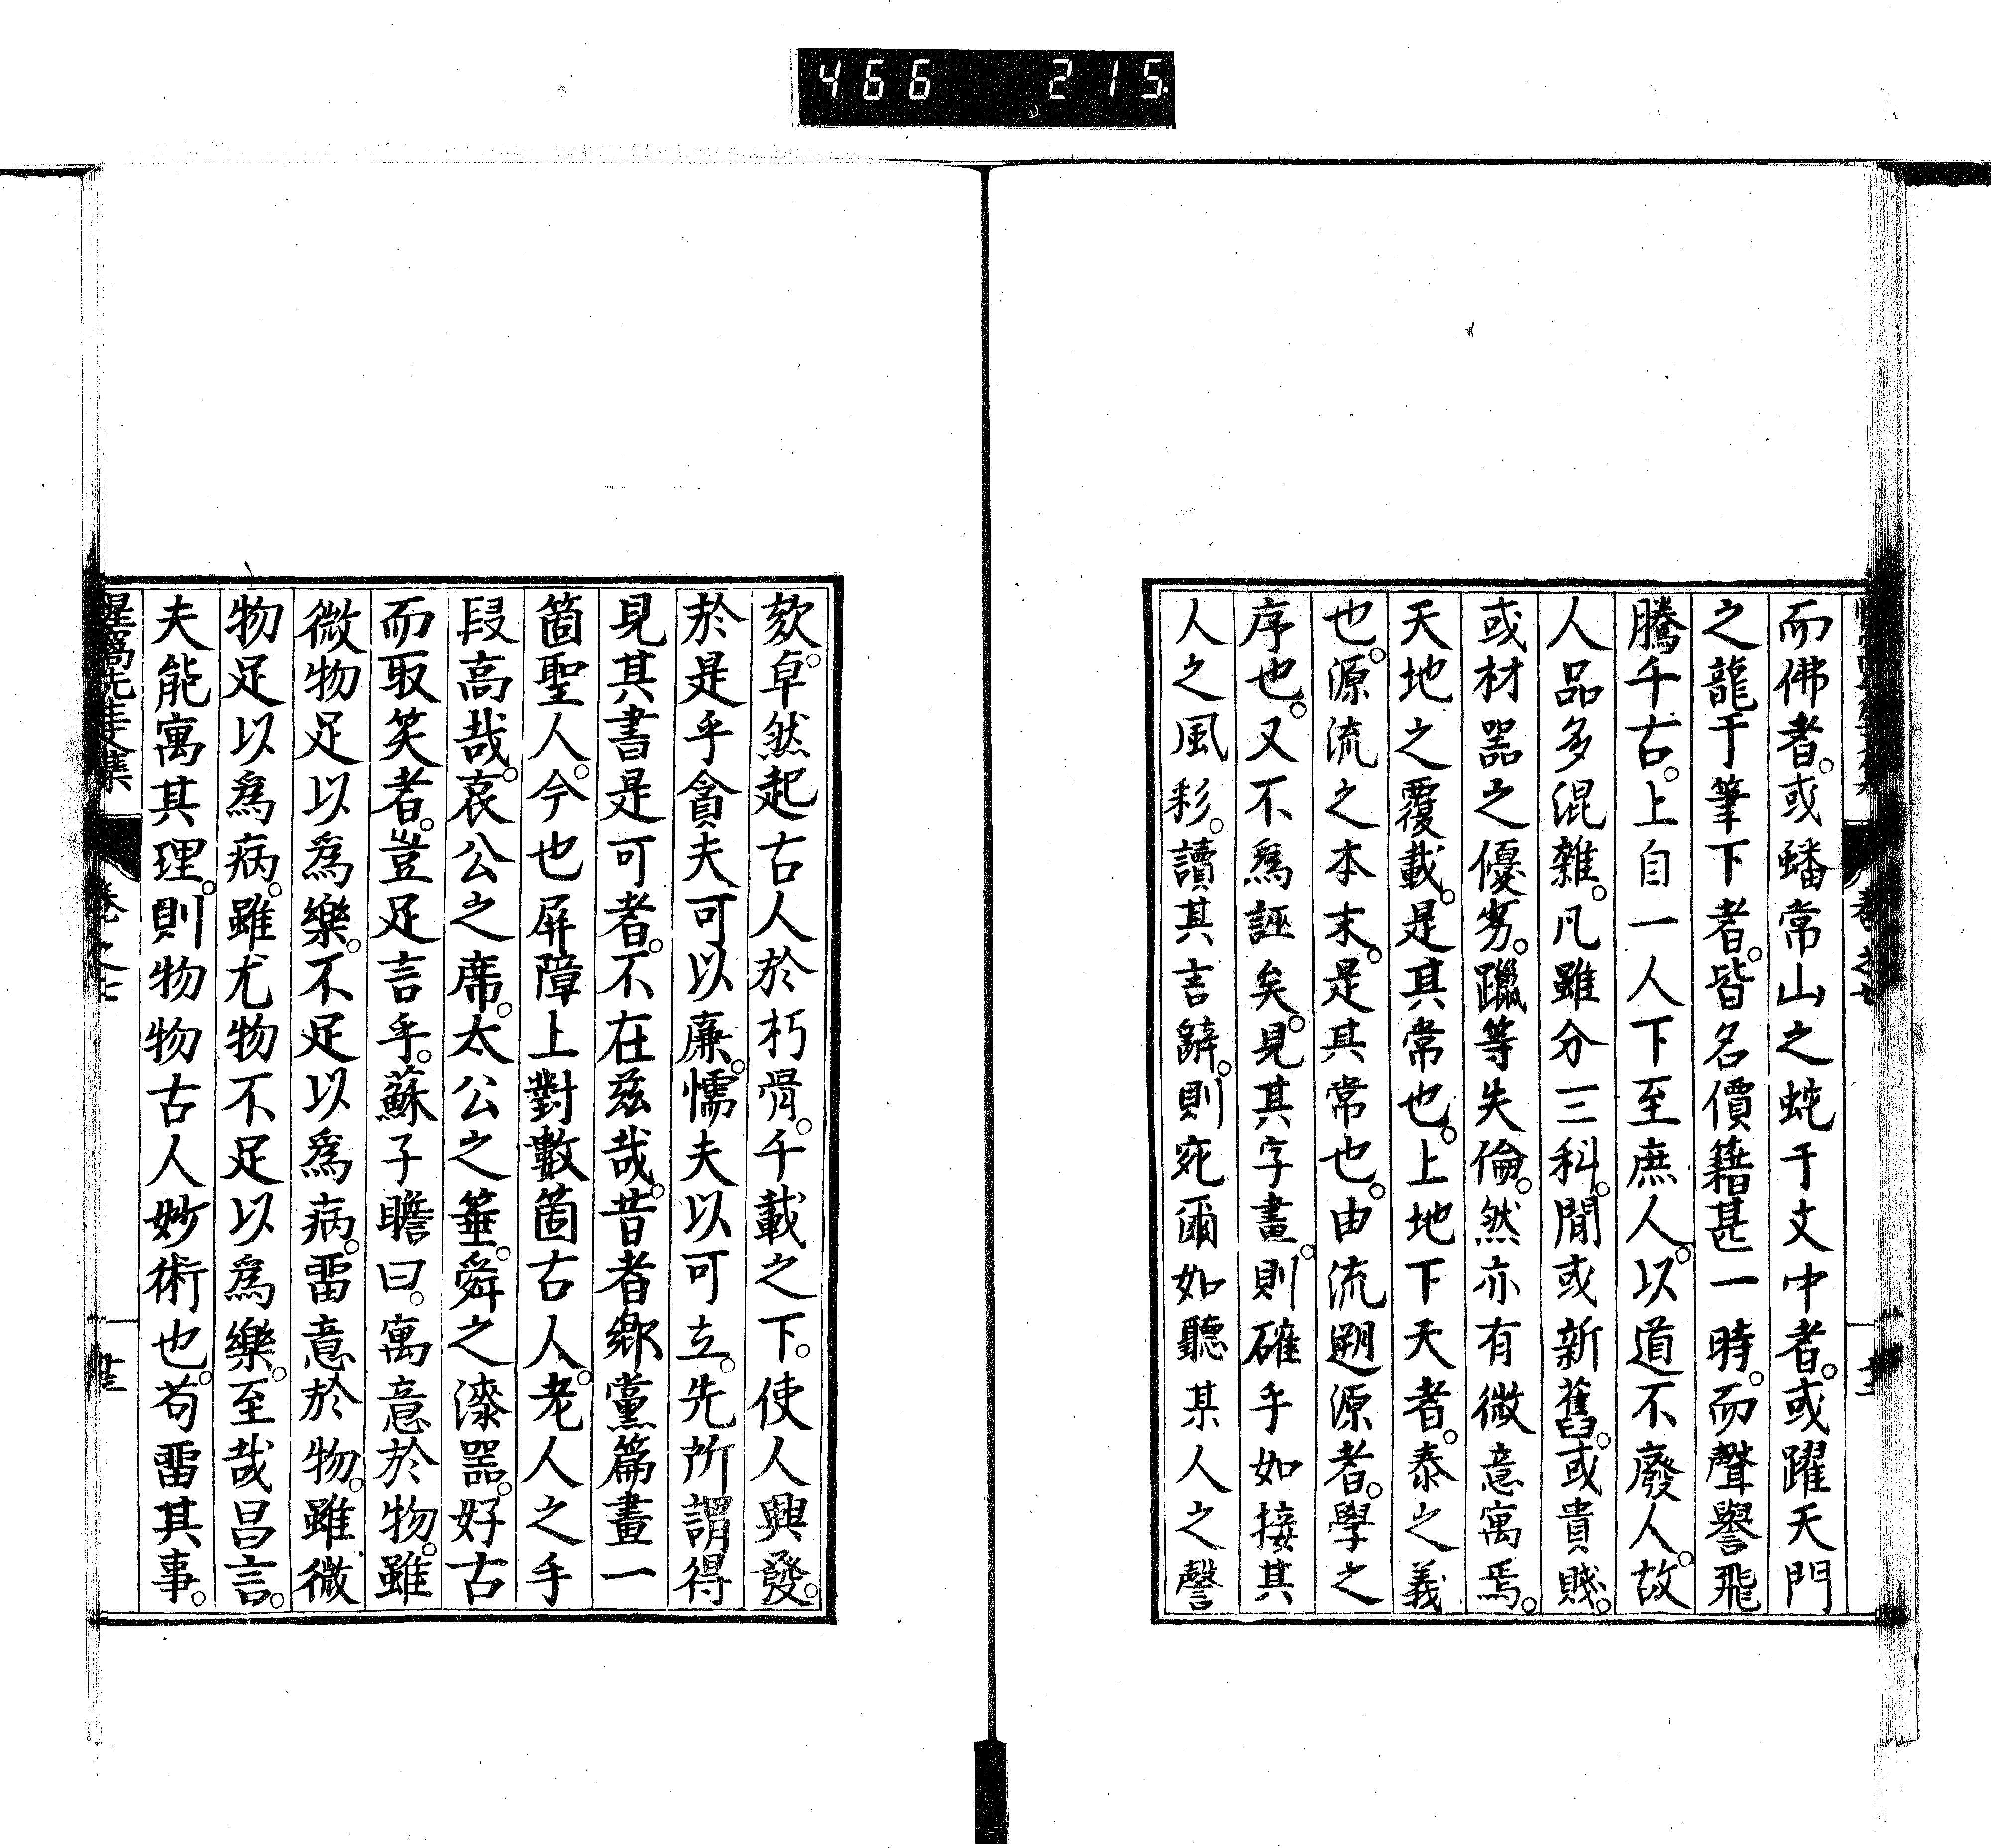 466 215
而佛者。或蟠常山之蛇于文中者。或躍天門
之龍于筆下者。皆名價籍甚一時。而聲譽飛
騰千古。上自一人下至庶人。以道不廢人。故
人品多混雜。凡雖分三科。間或新舊。或貴賤。
或材器之優劣。躐等失倫。然亦有微意寓焉。
天地之覆載。是其常也。上地下天者。泰之義
也。源流之本末。是其常也。由流遡源者。學之
序也。又不爲誣矣。見其字畫。則確乎如接其
人之風彩。讀其言辭。則宛爾如聽某人之謦
欬。卓然起古人於朽骨。千載之下。使人興發。
於是乎貪夫可以廉。懦夫以可立。先所謂得
見其書是可者。不在茲哉。昔者鄉黨篇畫一
箇聖人。今也屏障上對數箇古人。老人之手
段高哉。哀公之席。太公之箠。舜之漆器。好古
而取笑者。豈足言乎。蘇子瞻曰。寓意於物。雖
微物足以爲樂。不足以爲病。畱意於物。雖微
物足以爲病。雖尤物不足以爲樂。至哉昌言。
夫能寓其理。則物物古人妙術也。苟畱其事。
惺窩先生文集 卷之七